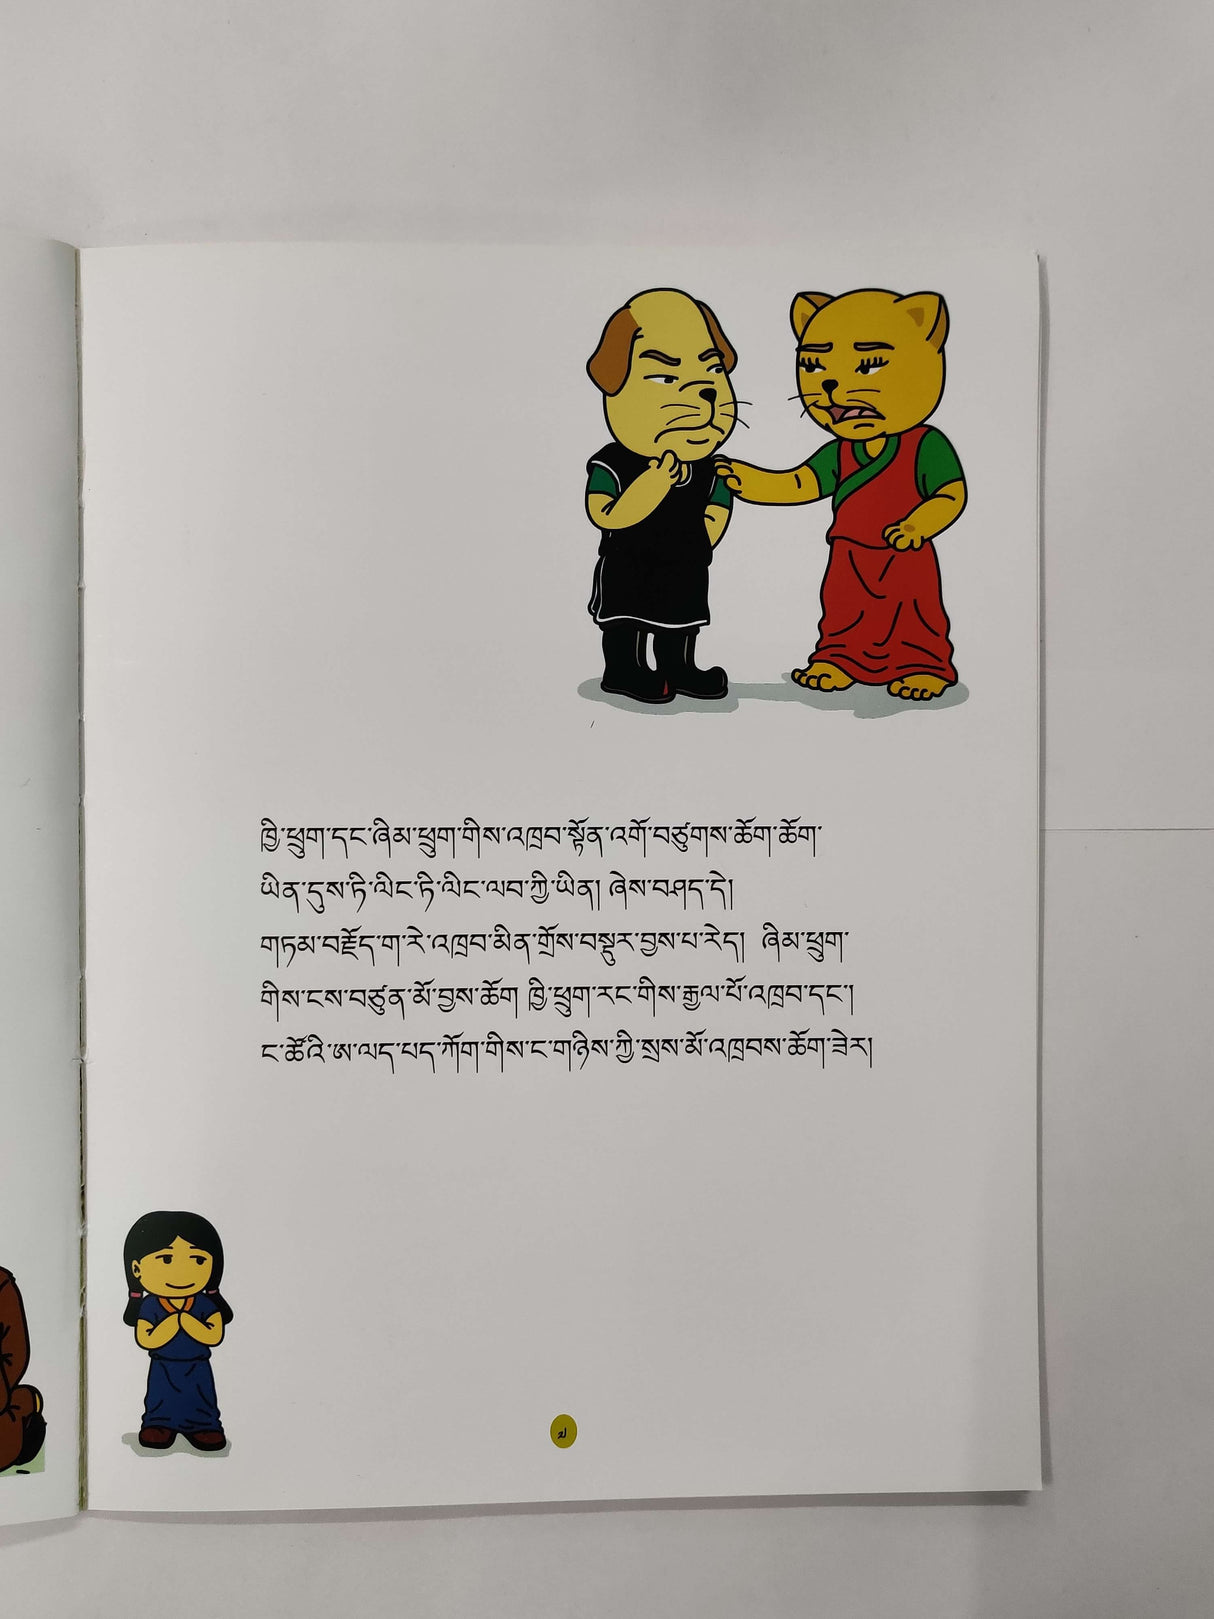 ཁྱི་ཕྲུག་དང་ཞིམ་ཕྲུག་གིས་འཁྲབ་སྟོན་འགོ་བཙུགས་ཆོག་ཆོག་
ཡིན་དུས་ཏི་ལིང་ཏི་ལིང་ལབ་ཀྱི་ཡིན། ཞེས་བཤད་དེ།
གཏམ་བརྗོད་ག་རེ་འཁྲབ་མིན་གྲོས་བསྡུར་བྱས་པ་རེད། ཞིམ་ཕྲུག་
གིས་ངས་བཙུན་མོ་བྱས་ཆོག ཁྱི་ཕྲུག་རང་གིས་རྒྱལ་པོ་འཁྲབ་དང་།
ང་ཚོའི་ཨ་ལད་པད་ཀོག་གིས་ང་གཉིས་ཀྱི་སྲས་མོ་འཁྲབས་ཆོག་ཟེར།
༧